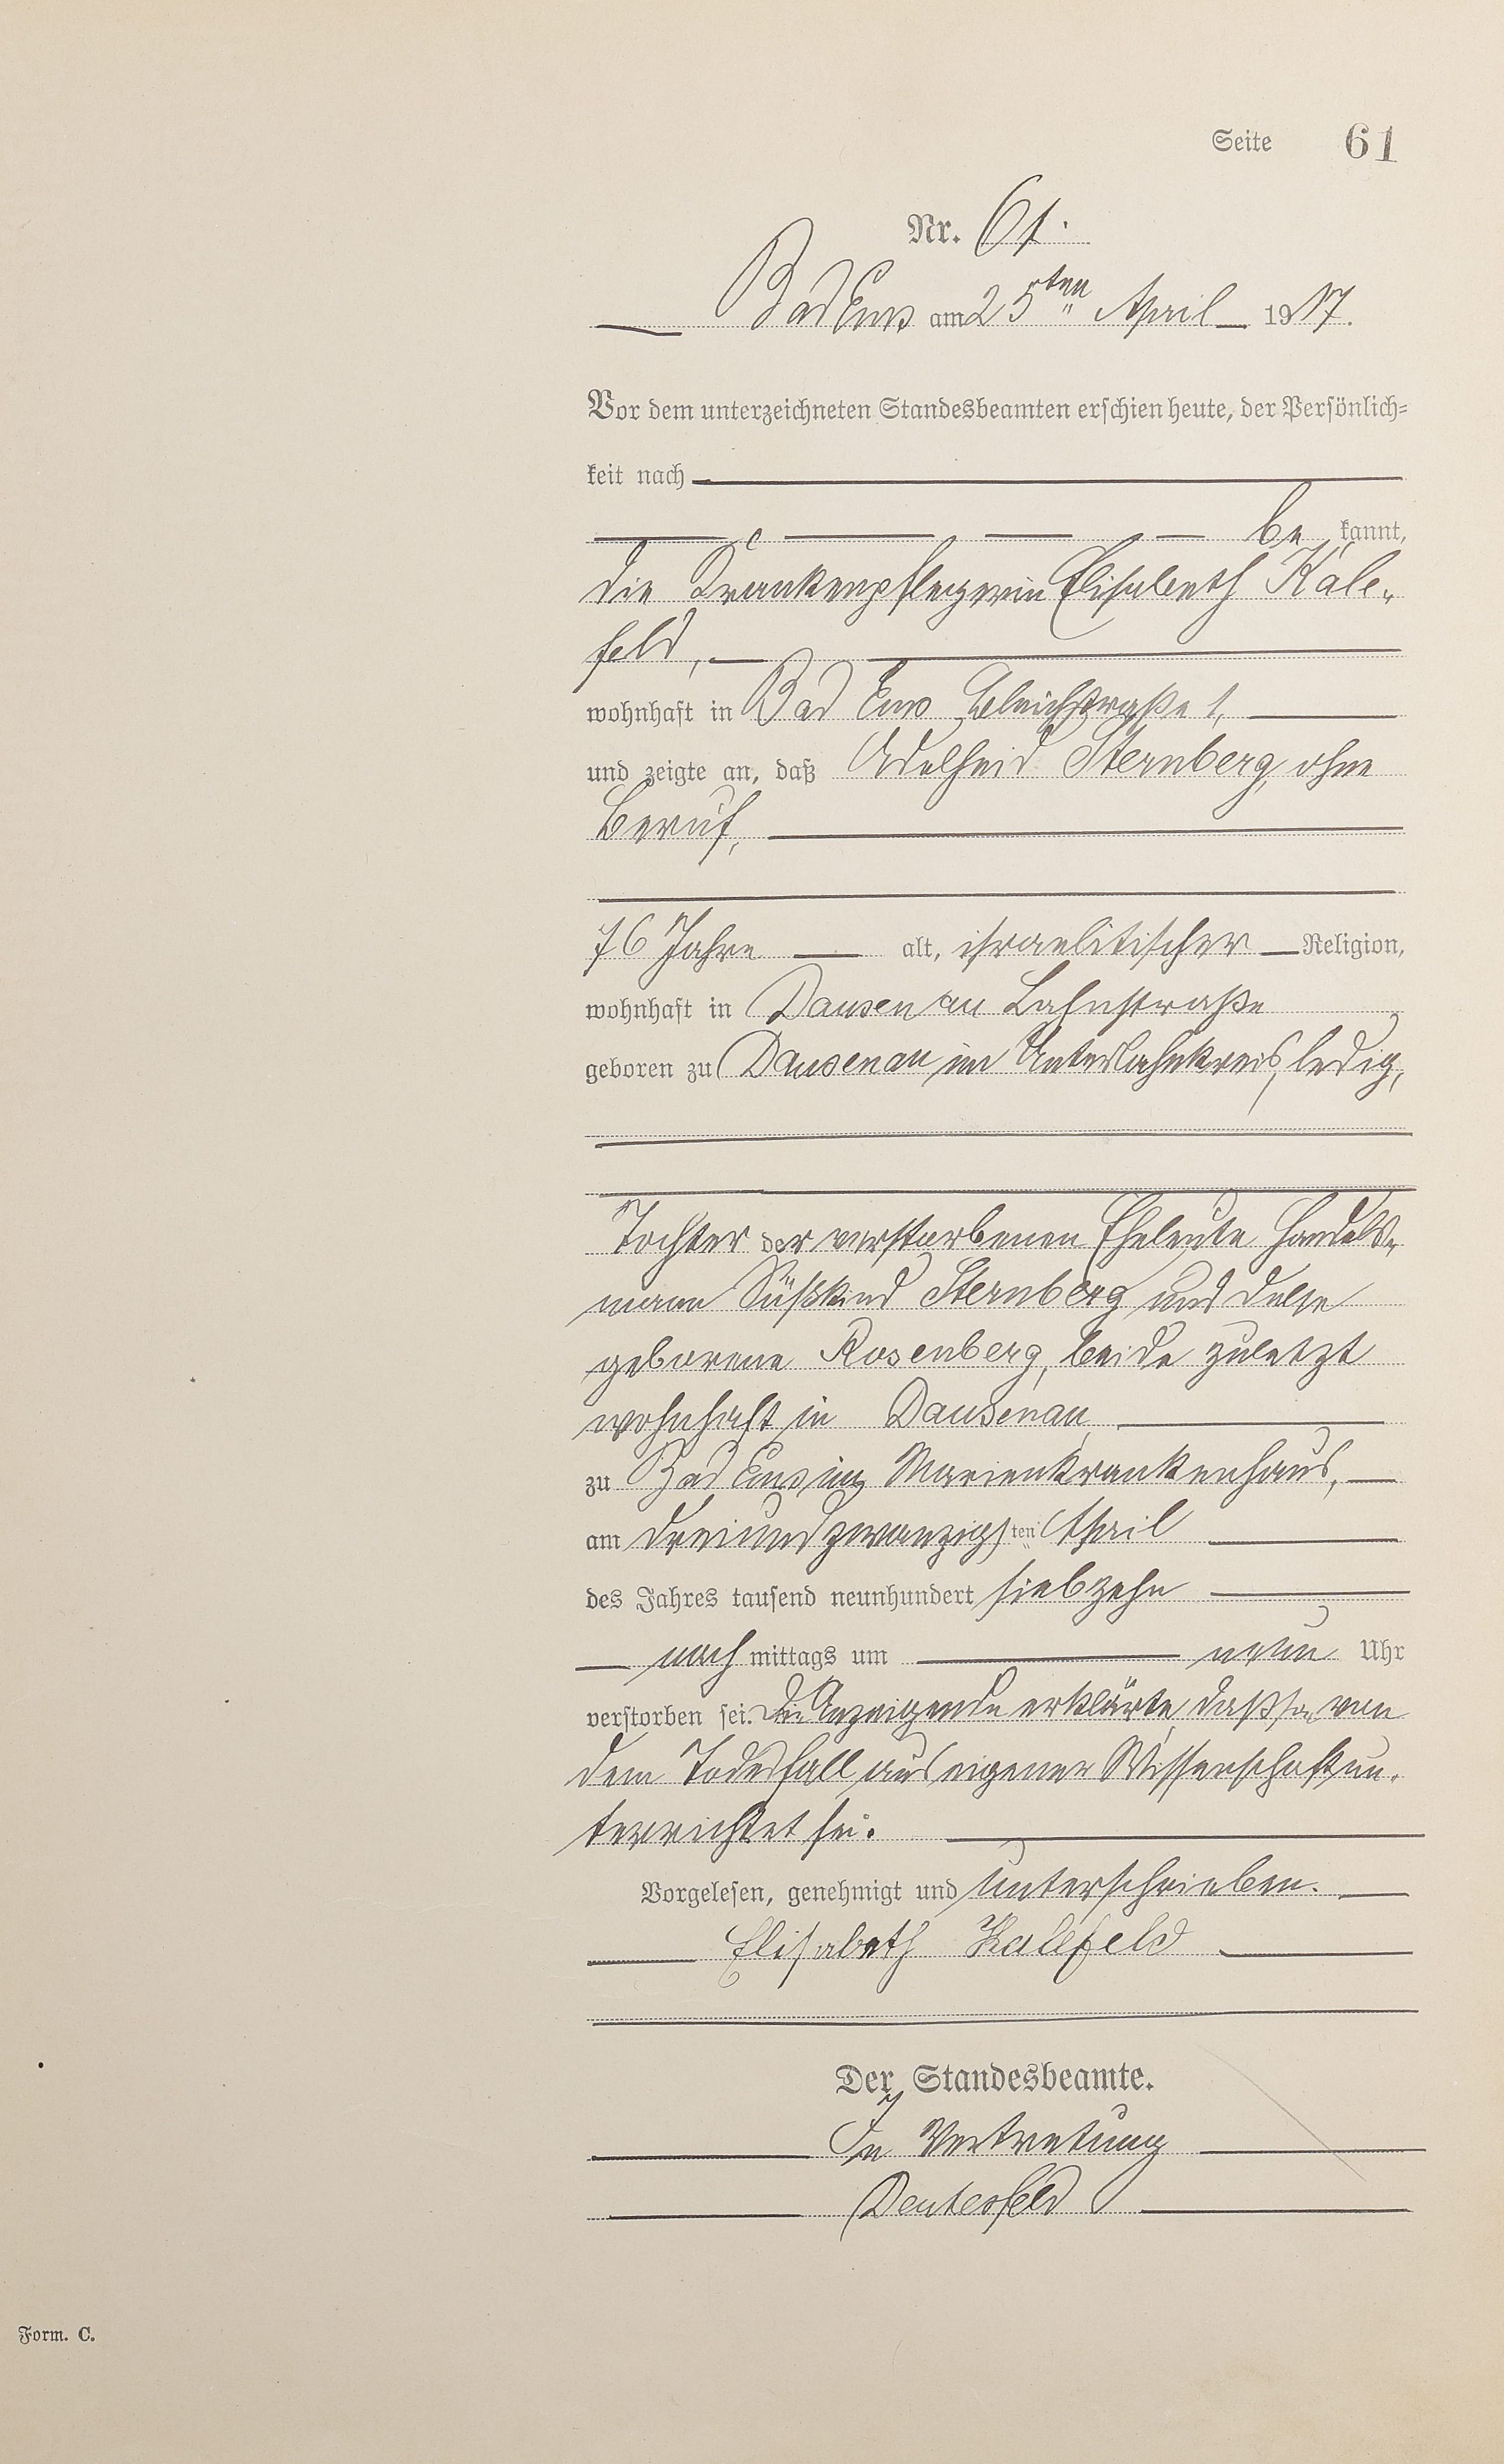 Seite 61
Nr. 61.
Bad Ems am 25ten April 1917.
Vor dem unterzeichneten Standesbeamten erschien heute, der Persönlich=
keit nach
be kannt,
die Krankenpflegerin Elisabeth Kale„
feld,
wohnhaft in Bad Ems Bleichstraße 1,
und zeigte an, daß Adelheid Sternberg, ohne
Beruf,
76 Jahre alt, israelitischer Religion,
wohnhaft in Dausenau Lahnstraße
geboren zu Dausenau im Unterlahnkreis, ledig,
Tochter der verstorbenen Eheleute Handels„
mann Süßkind Sternberg und
geborene Rosenberg, beide zuletzt
wohnhaft in Dausenau
zu Bad Ems im Marienkrankenhaus,
am dreiundzwanzigsten April
des Jahres tausend neunhundert siebzehn
nach mittags um neun Uhr
verstorben sei. Die Anzeigende erklärte, daß sie von
dem Todesfall aus eigener Wissenschaft un„
terrichtet sei.
Vorgelesen, genehmigt und unterschrieben.
Elisabeth Kalefeld
Der Standesbeamte.
In Vertretung
Form. C.